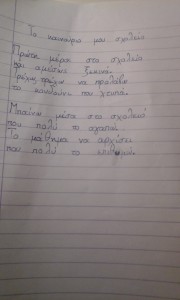 Το καινούριο μου σχολείο
Πρώτη μέρα στο σχολείο
και αμέσως ξεκινώ
τρέχω, τρέχω να προλάβω
το κουδούνι που χτυπά.
Μπαίνω μέσα στο σχολειό
που πολύ το αγαπώ
Το μάθημα να αρχίσει
που πολύ το επιθυμώ.